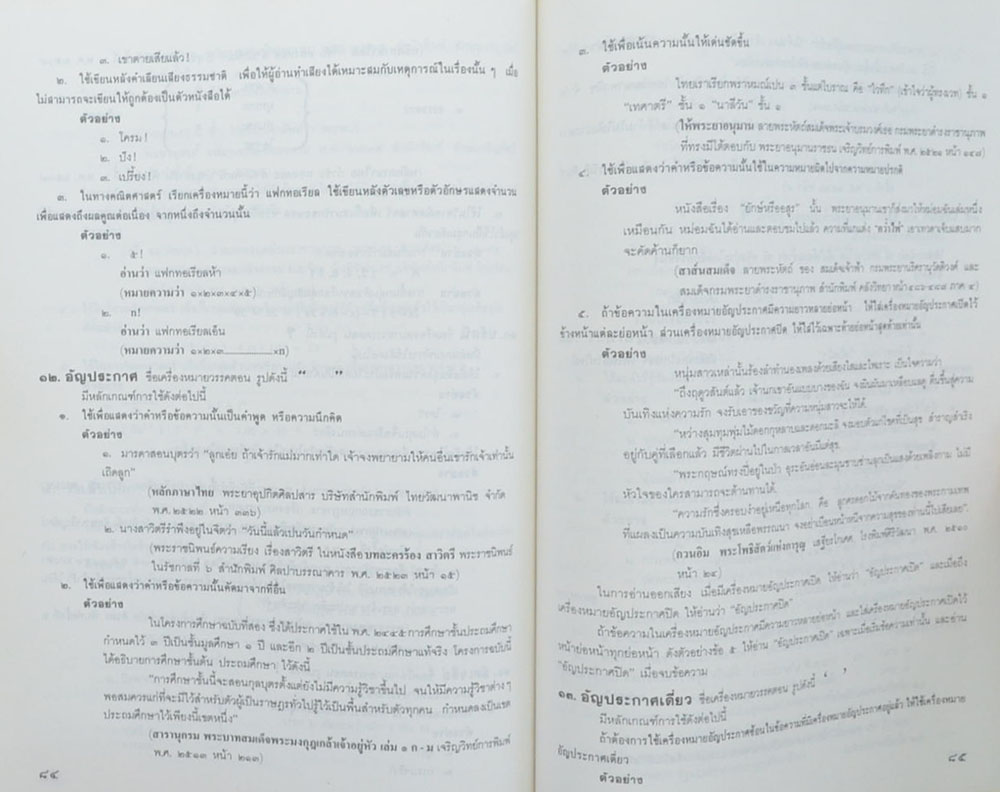 ๓. เขาตายเสียแล้ว!
๒. ใช้เขียนหลังคำเลียนเสียงธรรมชาติ เพื่อให้ผู้อ่านทำเสียงได้เหมาะสมกับเหตุการณ์ในเรื่องนั้น ๆ เมื่อ
ไม่สามารถจะเขียนให้ถูกต้องเป็นตัวหนังสือได้
ตัวอย่าง
๑. โครม!
๒. ปัง!
๓. เปรี้ยง!
๓. ในทางคณิตศาสตร์ เรียกเครื่องหมายนี้ว่า แฟกทอเรียล ใช้เขียนหลังตัวเลขหรือตัวอักษรแสดงจำนวน
เพื่อแสดงถึงผลคูณต่อเนื่อง จากหนึ่งถึงจำนวนนั้น
ตัวอย่าง
๑. ๕!
อ่านว่า แฟกทอเรียลห้า
(หมายความว่า ๑×๒×๓×๔×๕)
๒. n!
อ่านว่า แฟกทอเรียลเอ็น
(หมายความว่า ๑×๒×๓..................×n)
๑๒. อัญประกาศ ชื่อเครื่องหมายวรรคตอน รูปดังนี้ “ ”
มีหลักเกณฑ์การใช้ดังต่อไปนี้
๑. ใช้เพื่อแสดงว่าคำหรือข้อความนั้นเป็นคำพูด หรือความนึกคิด
ตัวอย่าง
๑. มารดาสอนบุตรว่า “ลูกเอ๋ย ถ้าเจ้ารักแม่มากเท่าใด เจ้าจงพยายามให้คนอื่นเขารักเจ้าเท่านั้น
เถิดลูก”
(หลักภาษาไทย พระยาอุปกิตศิลปสาร บริษัทสำนักพิมพ์ ไทยวัฒนาพานิช จำกัด
พ.ศ. ๒๕๒๒ หน้า ๓๓๖)
๒. นางสาวิตรีรำพึงอยู่ในจิตว่า “วันนี้แล้วเปนวันกำหนด”
(พระราชนิพนธ์ความเรียง เรื่องสาวิตรี ในหนังสือบทละครร้อง สาวิตรี พระราชนิพนธ์
ในรัชกาลที่ ๖ สำนักพิมพ์ ศิลปาบรรณาคาร พ.ศ. ๒๕๒๓ หน้า ๑๕)
๒. ใช้เพื่อแสดงว่าคำหรือข้อความนั้นคัดมาจากที่อื่น
ตัวอย่าง
ในโครงการศึกษาฉบับที่สอง ซึ่งได้ประกาศใช้ใน พ.ศ. ๒๔๔๕ การศึกษาชั้นประถมศึกษา
กำหนดไว้ ๓ ปีเป็นชั้นมูลศึกษา ๑ ปี และอีก ๒ ปีเป็นชั้นประถมศึกษาแท้จริง โครงการฉบับนี้
ได้อธิบายการศึกษาชั้นต้น ประถมศึกษา ไว้ดังนี้
“การศึกษาชั้นนี้จะสอนกุลบุตรตั้งแต่ยังไม่มีความรู้วิชาขึ้นไป จนให้มีความรู้วิชาต่างๆ
พอสมควรแก่ที่จะมีไว้สำหรับตัวผู้เป็นราษฎรทั่วไปรู้ไว้เป็นพื้นสำหรับตัวทุกคน กำหนดลงเป็นเขต
ประถมศึกษาไว้เพียงนี้เขตหนึ่ง”
(สารานุกรม พระบาทสมเด็จพระมงกุฎเกล้าเจ้าอยู่หัว เล่ม ๑ ก - ม เจริญวิทย์การพิมพ์
พ.ศ. ๒๕๑๓ หน้า ๒๑๓)
๘๔
๓. ใช้เพื่อเน้นความนั้นให้เด่นชัดขึ้น
ตัวอย่าง
ไทยเราเรียกพราหมณ์เปน ๓ ชั้นแต่โบราณ คือ “ไวทิก” (เข้าใจว่าผู้ทรงเวท) ชั้น ๑
“เทศาตรี” ชั้น ๑ “นาลีวัน” ชั้น ๑
(ให้พระยาอนุมาน ลายพระหัตถ์สมเด็จพระเจ้าบรมวงศ์เธอ กรมพระยาดำรงราชานุภาพ
ที่ทรงมีโต้ตอบกับ พระยาอนุมานราชธน เจริญวิทย์การพิมพ์ พ.ศ. ๒๕๒๑ หน้า ๑๔๗)
๔. ใช้เพื่อแสดงว่าคำหรือข้อความนั้นใช้ในความหมายผิดไปจากความหมายปรกติ
ตัวอย่าง
หนังสือเรื่อง “ยักษ์หรืออสูร” นั้น พระยาอนุมานเขาก็ส่งมาให้หม่อมฉันเล่มหนึ่ง
เหมือนกัน หม่อมฉันได้อ่านและตอบชมไปแล้ว ความที่แกแต่ง
จะคัดค้านก็ยาก
(สาส์นสมเด็จ ลายพระหัตถ์ ของ สมเด็จเจ้าฟ้า กรมพระยานริศรานุวัดติวงศ์ และ
สมเด็จกรมพระยาดำรงราชานุภาพ สำนักพิมพ์ คลังวิทยา หน้า ภาค ๔)
๕. ถ้าข้อความในเครื่องหมายอัญประกาศมีความยาวหลายย่อหน้า ให้ใส่เครื่องหมายอัญประกาศเปิดไว้
ข้างหน้าแต่ละย่อหน้า ส่วนเครื่องหมายอัญประกาศปิด ให้ใส่ไว้เฉพาะท้ายย่อหน้าสุดท้ายเท่านั้น
ตัวอย่าง
หนุ่มสาวเหล่านั้นร้องลำทำนองเพลงด้วยเสียงใสและไพเราะ เป็นใจความว่า
“ถึงฤดูวสันต์แล้ว เจ้านกเขาอันแบบบางของฉัน จงผันผันมาเหมือนแลดู ตื่นขึ้นสู่ความ
บันเทิงแห่งความรัก จงรับเอาของขวัญที่ความหนุ่มสาวจะให้ได้.
“หว่างสุมทุมพุ่มไม้ดอกกุหลาบและดอกมะลิ จงมอบตัวแก่โชคที่เป็นสุข สำราญสำเริง
อยู่กับคู่ที่เลือกแล้ว มีชีวิตผ่านไปในกาลเวลาอันมีแต่สุข.
“พระกฤษณ์ทรงปี่อยู่ในป่า ธุระอันอ่อนละมุนราบซ่านลุกเป็นแสงด้วยเพลิงกาม ไม่มี
หัวใจของใครสามารถจะต้านทานได้.
“ความรักซึ่งครอบงำอยู่เหนือทุกโลก คือ ลูกศรดอกไม้จากคันทองของพระกามเทพ
ที่แผลงเป็นความบันเทิงสุขเหลือพรรณนา จงอย่าเบือนหน้าหนีจากความสุขของท่านนี้ไปเสียเลย”.
(กวนอิม พระโพธิสัตว์แห่งการุญ เสฐียรโกเศศ โรงพิมพ์ศิริวัฒนา พ.ศ. ๒๕๑๐
หน้า ๒๔)
ในการอ่านออกเสียง เมื่อมีเครื่องหมายอัญประกาศเปิด ให้อ่านว่า “อัญประกาศเปิด” และเมื่อถึง
เครื่องหมายอัญประกาศปิด ให้อ่านว่า “อัญประกาศปิด”
ถ้าข้อความในเครื่องหมายอัญประกาศมีความยาวหลายย่อหน้า และใส่เครื่องหมายอัญประกาศเปิดไว้
หน้าย่อหน้าทุกย่อหน้า ดังตัวอย่างข้อ ๕ ให้อ่าน “อัญประกาศเปิด” เฉพาะเมื่อเริ่มข้อความเท่านั้น และอ่าน
“อัญประกาศปิด” เมื่อจบข้อความ
๑๓. อัญประกาศเดี่ยว ชื่อเครื่องหมายวรรคตอน รูปดังนี้ ‘ ’
มีหลักเกณฑ์การใช้ดังต่อไปนี้
ถ้าต้องการใช้เครื่องหมายอัญประกาศซ้อนในข้อความที่มีเครื่องหมายอัญประกาศอยู่แล้ว ให้ใช้เครื่องหมาย
อัญประกาศเดี่ยว
ตัวอย่าง
๘๕